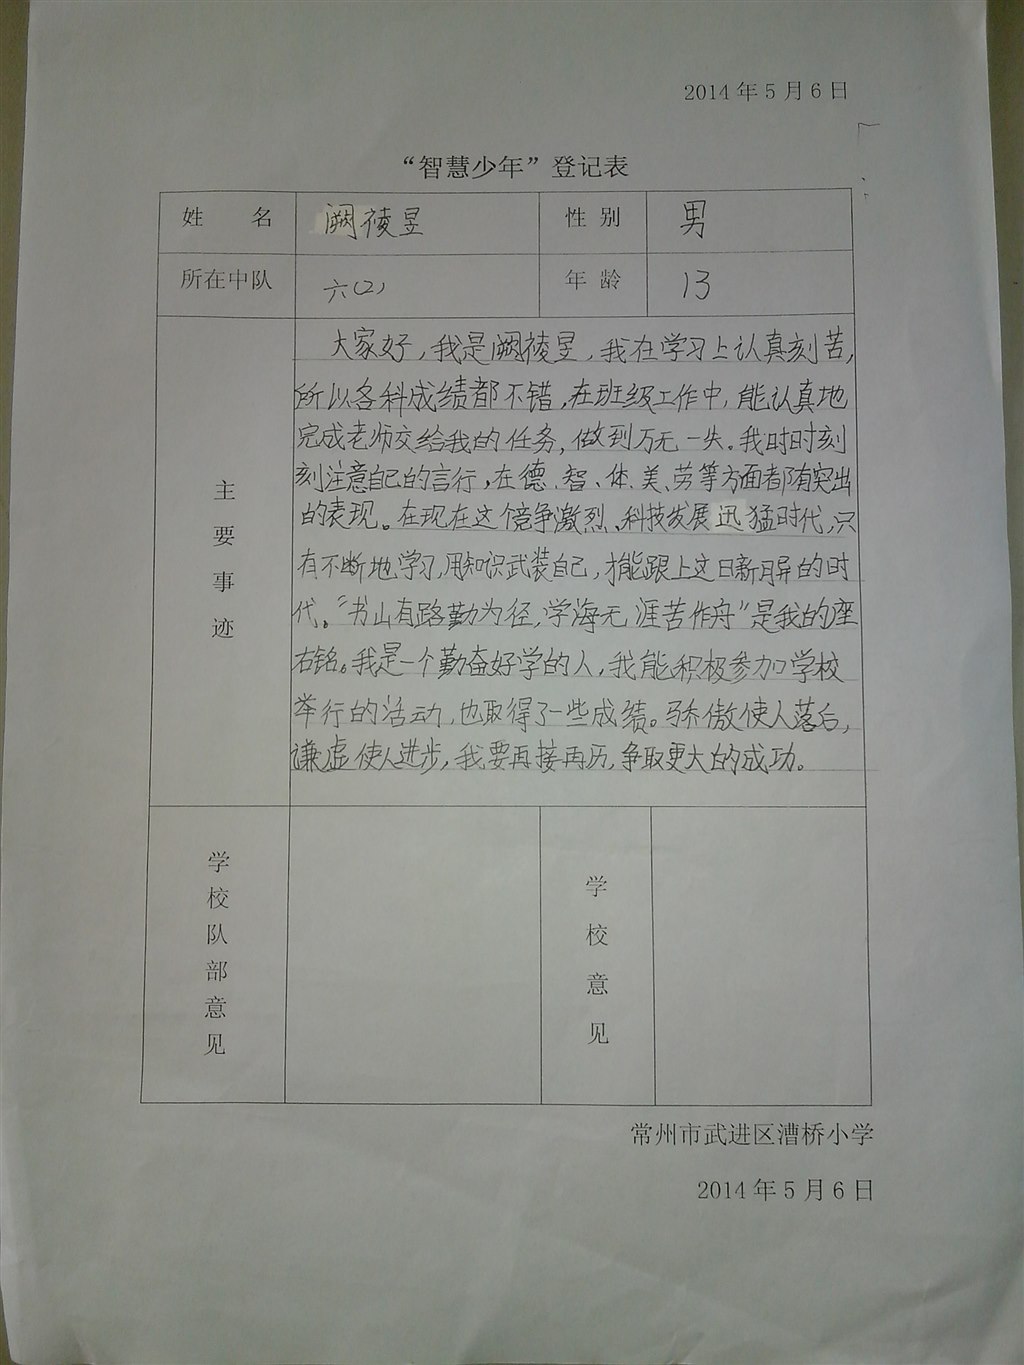 2014年5月6日
“智慧少年”登记表
姓 名 阙祾昱 性 别 男
所在中队 六(2) 年 龄 13
主要事迹
大家好，我是阙祾昱，我在学习上认真刻苦，
所以各科成绩都不错，在班级工作中，能认真地
完成老师交给我的任务，做到万无一失。我时时刻
刻注意自己的言行，在德、智、体、美、劳等方面都有突出
的表现。在现在这个竞争激烈、科技发展迅猛时代，只
有不断地学习，用知识武装自己，才能跟上这日新月异的时
代。“书山有路勤为径，学海无涯苦作舟”是我的座
右铭。我是一个勤奋好学的人，我能积极参加学校
举行的活动，也取得了一些成绩。骄傲使人落后，
谦虚使人进步，我要再接再历，争取更大的成功。
学校队部意见 学校意见
常州市武进区漕桥小学
2014年5月6日